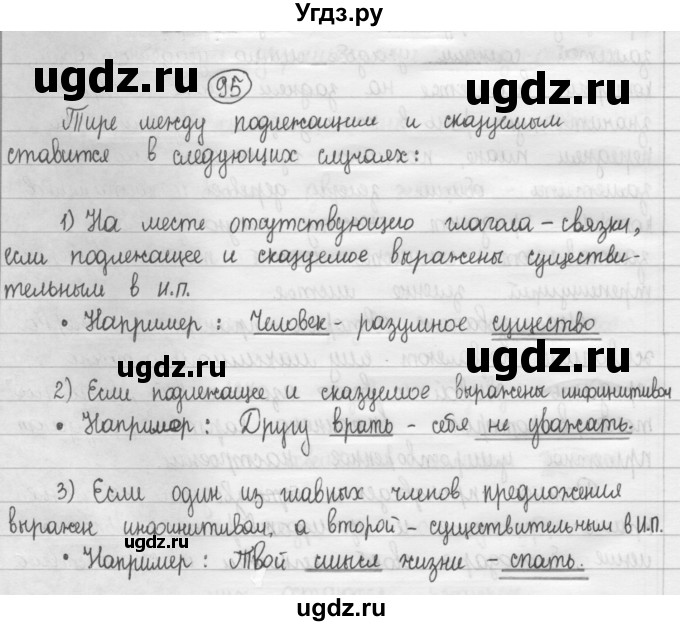 Угdз.ру
ugdz.ru ugdz.ru
95
Тире между подлежащим и сказуемым
ставится в следующих случаях:
1) На месте отсутствующего глагола - связки,
если подлежащее и сказуемое выражены существи-
тельным в И.П.
• Например: Человек - разумное существо
ugdz.ru ugdz.ru
2) Если подлежащее и сказуемое выражены инфинитивом
• Например: Другу врать - себя не уважать.
3) Если один из главных членов предложения
выражен инфинитивом, а второй - существительным в И.П.
• Например: Твой смысл жизни - спать.
ugdz.ru ugdz.ru
ugdz.ru